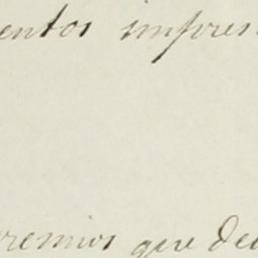 entos impres
remios que de